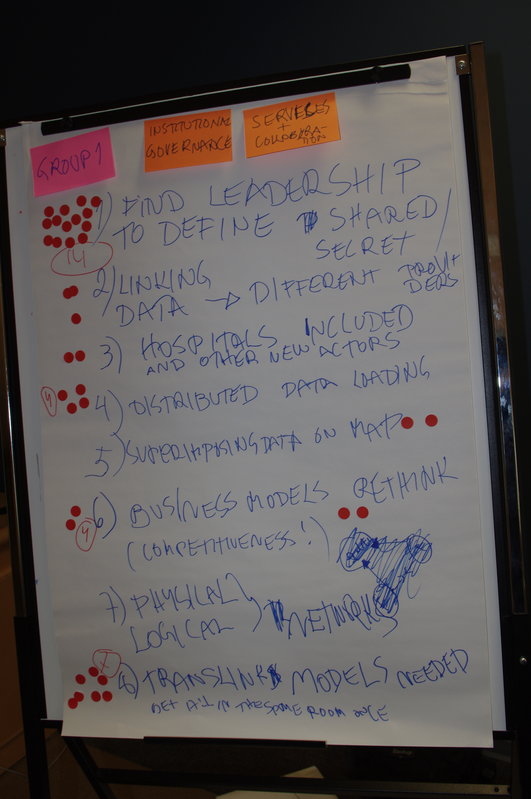 GROUP 1
INSTITUTIONAL
GOVERNANCE
SERVICES
+
COLLABORA-
TION
1) FIND LEADERSHIP
TO DEFINE SHARED/
SECRET
14
2) LINKING
DATA → DIFFERENT PROVI
DERS
3) HOSPITALS INCLUDED
AND OTHER NEW ACTORS
4
4) DISTRIBUTED DATA LOADING
5) SUPERIMPOSING DATA ON MAP
6) BUSINESS MODELS RETHINK
4
(COMPETITIVENESS!)
7) PHYSICAL
LOGICAL } NETWORKS
7
8) TRANSLINK MODELS NEEDED
GET ALL IN THE SAME ROOM ONCE